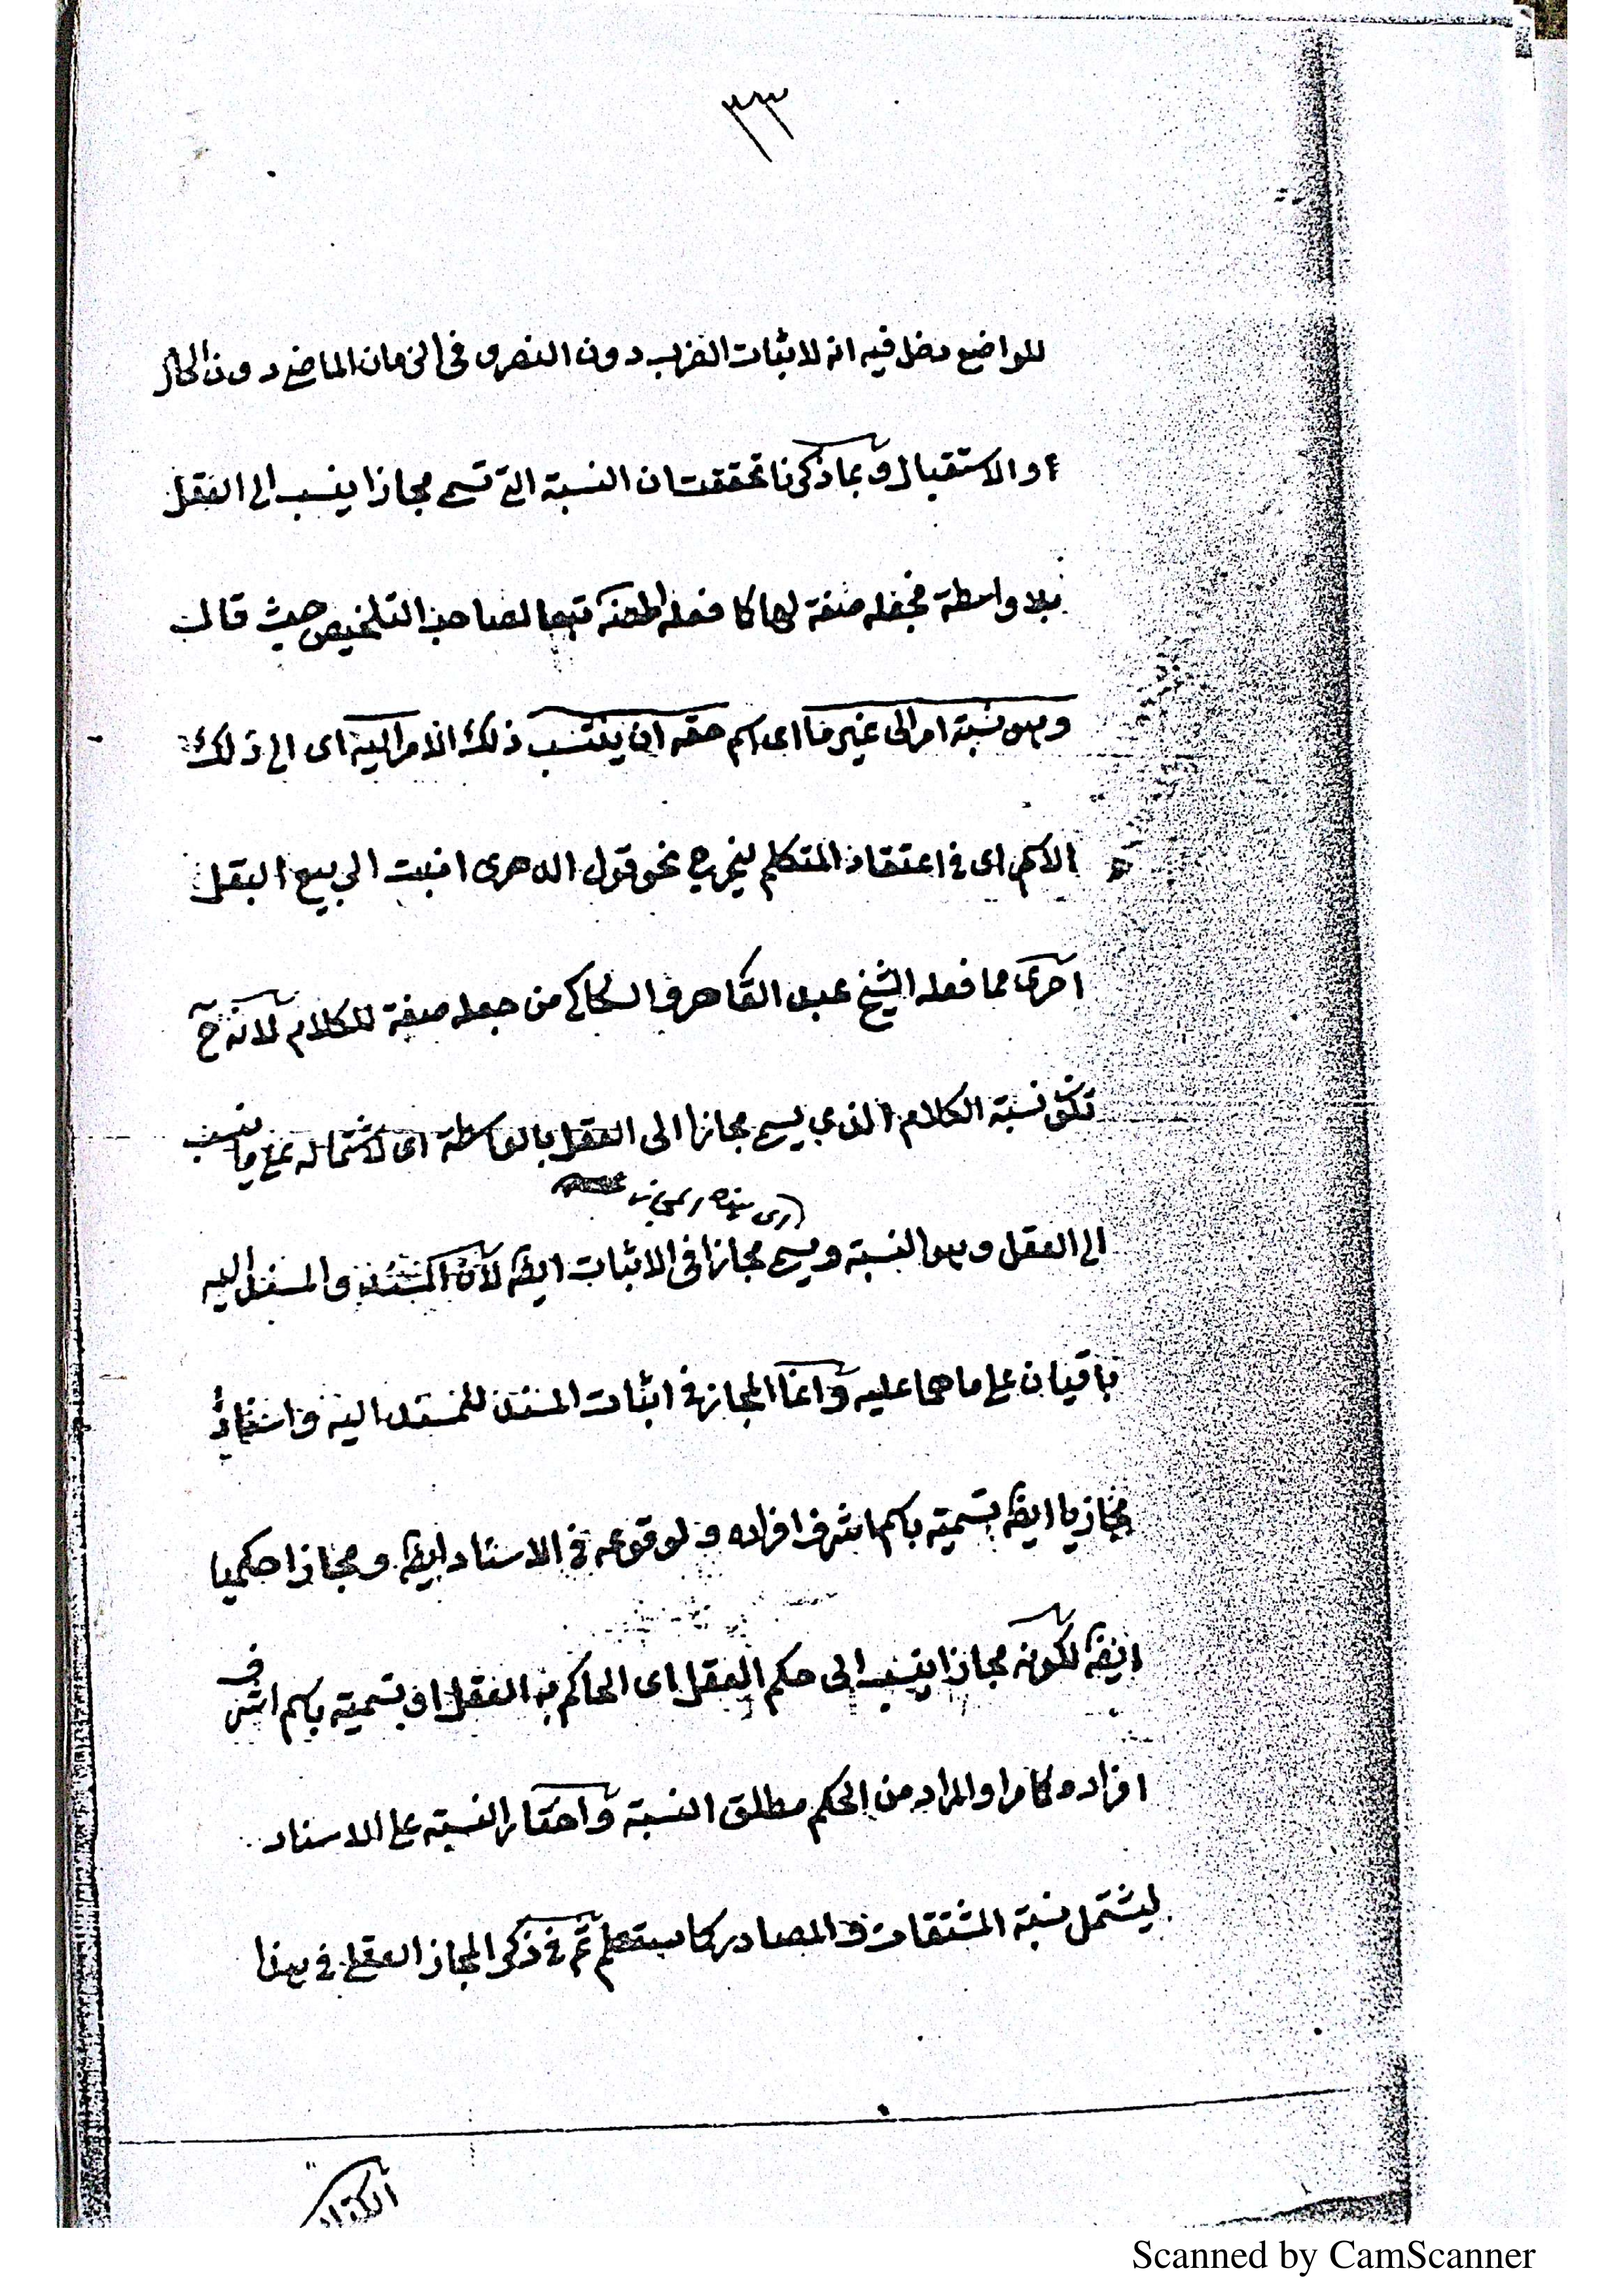 ٣٣
للواضع دخل فيه انه لاثبات الضرب دون النصر و فى الزمان الماضى دون الحال
او الاستقبال وبما ذكرنا تحققت ان النسبة التى تسمى مجازا ينسب الى العقل
بلا واسطة فجعله صفة لها كا فعله تبعا لصاحب التلخيص حيث قال
وهو نسبة امر الى غير ما اى اسم حقه ان ينتسب ذلك الامر اليه اى الى ذلك
الاسم اى فى اعتقاد المتكلم ليخرج نحو قول الدهرى انبت الربيع البقل
احرى مما فعله الشيخ عبد القاهر و السكاكى من جعله صفة للكلام لانه ح
تكون نسبة الكلام الذى يسمى مجازا الى العقل بالواسطة اى لاشتماله على ما ينسب
الى العقل وهو النسبة ويسمى مجازا فى الاثبات ايضا لان المسند و المسند اليه
باقيان على ما هما عليه وانما المجاز فى اثبات المسند للمسند اليه و اسنادا
مجازيا ايضا تسميته باسم اشرف افراده و لوقوعه فى الاسناد ايضا و مجازا حكميا
ايضا لكونه مجازا ينسب الى حكم العقل اى الحاكم به العقل او تسميته باسم اشرف
افراده كامر والمراد من الحكم مطلق النسبة واختار النسبة على الاسناد
ليشتمل نسبة المشتقات و المصادر كا ستعلم ثم فى ذكر المجاز العقلى فى هذا
الكتاب
Scanned by CamScanner